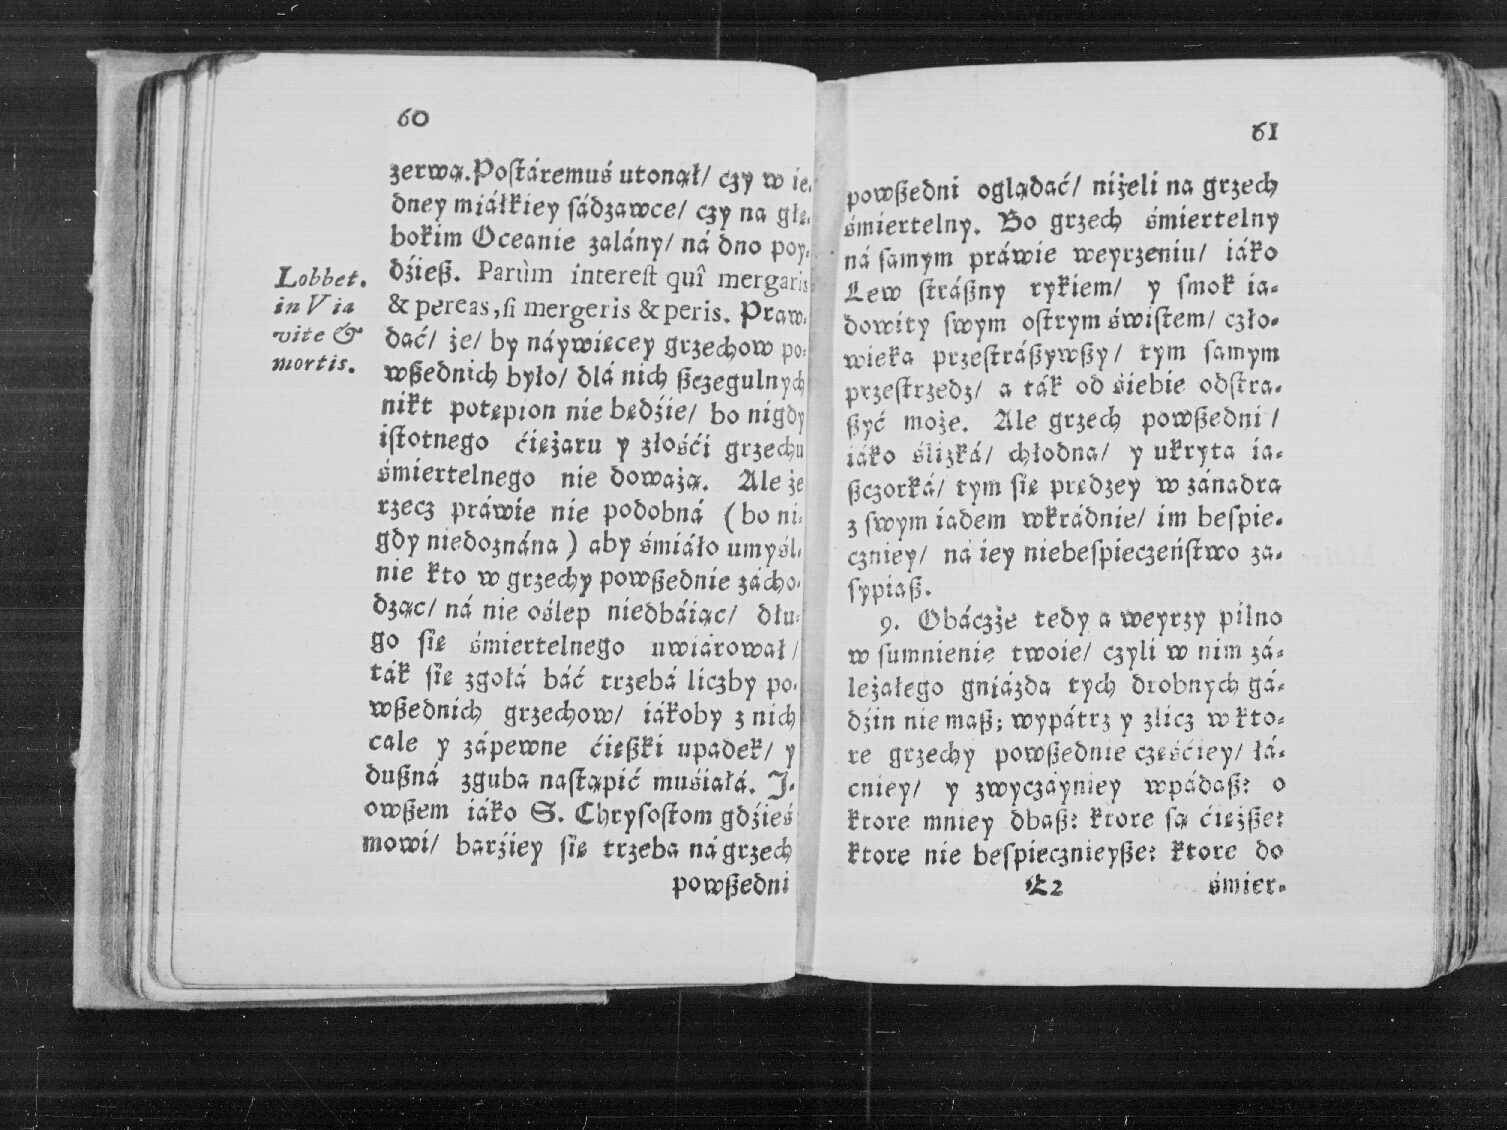 60
zerwą. Poſtáremuś utonął/ czy w ie-
dney miáłkiey ſádzawce/ czy na głę-
bokim Oceanie zalány/ ná dno poy-
dźieß. Parùm intereſt quî mergaris
& pereas, ſi mergeris & peris. Praw-
dáć/ że/ by náywięcey grzechow po-
wßednich było/ dlá nich ßczegulnych
nikt potępion nie będźie/ bo nigdy
iſtotnego ćiężaru y złośći grzechu
śmiertelnego nie doważą. Ale że
rzecz práwie nie podobná (bo ni-
gdy niedoznána) aby śmiáło umyśl-
nie kto w grzechy powßednie zácho-
dząc/ ná nie oślep niedbáiąc/ dłu-
go ſię śmiertelnego uwiárował/
ták ſię zgołá báć trzebá liczby po-
wßednich grzechow/ iákoby z nich
cale y zápewne ćięßki upadek/ y
dußná zguba naſtąpić muśiałá. J-
owßem iáko S. Chryſoſtom gdźieś
mowi/ barźiey ſię trzeba ná grzech
powßedni
Lobbet.
in Via
vite &
mortis.
61
powßedni oglądáć/ niżeli na grzech
śmiertelny. Bo grzech śmiertelny
ná ſamym práwie weyrzeniu/ iáko
Lew ſtráßny rykiem/ y ſmok ia-
dowity ſwym oſtrym świſtem/ czło-
wieka przeſtráßywßy/ tym ſamym
przeſtrzedz/ a ták od śiebie odſtra-
ßyć może. Ale grzech powßedni/
iáko ślizká/ chłodna/ y ukryta ia-
ßczorká/ tym ſię prędzey w zánadra
z ſwym iadem wkrádnie/ im beſpie-
czniey/ ná iey niebeſpieczeńſtwo za-
ſypiaß.
9. Obáczże tedy a weyrzy pilno
w ſumnienie twoie/ czyli w nim zá-
leżałego gniázda tych drobnych gá-
dźin nie maß; wypátrz y zlicz w kto-
re grzechy powßednie częśćiey/ łá-
cniey/ y zwyczáyniey wpádaß: o
ktore mniey dbaß: ktore ſą ćiężße:
ktore nie beſpiecznieyße: ktore do
E2 śmier-